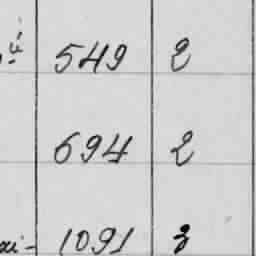 549 2
694 2
1091 3